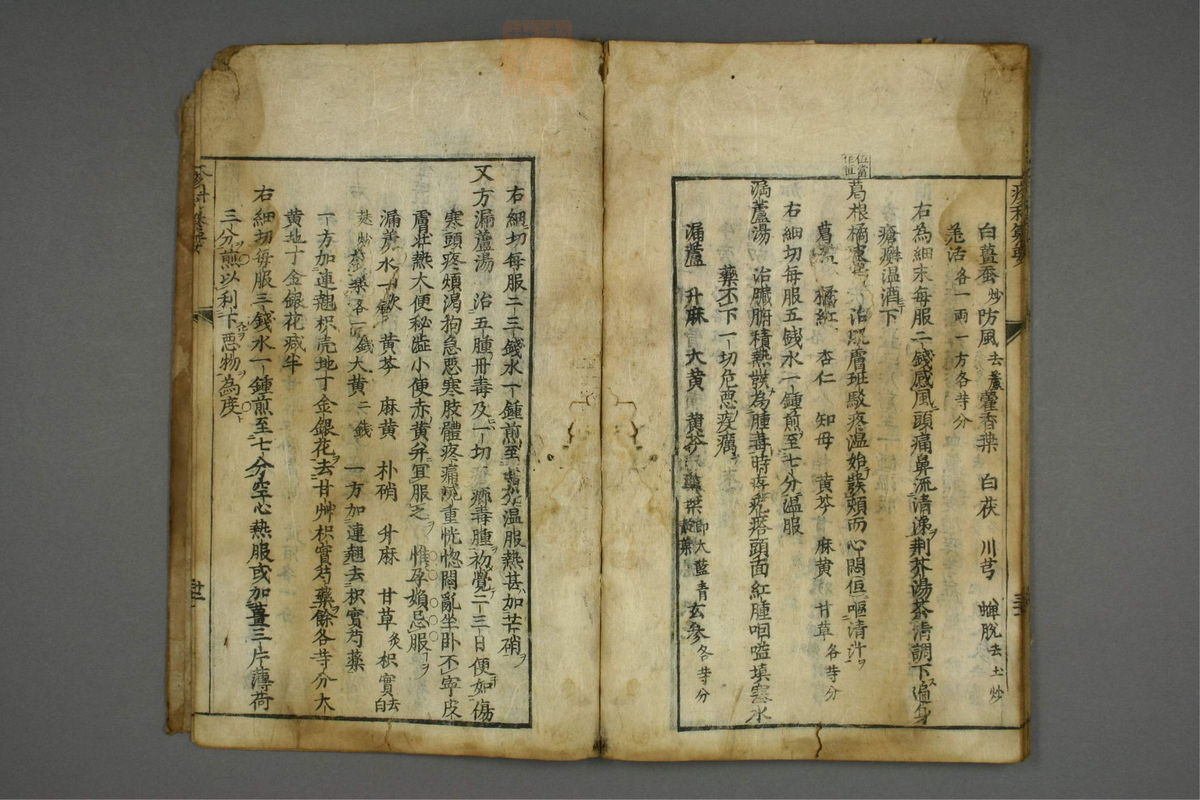 白薑蚕炒 防風去蘆 藿香葉 白茯 川芎 蝉脫去土炒
羌活各一兩一方各等分
右為細末每服二錢感風頭痛鼻流清涕荆芥湯茶清調下遍身
瘡癬温酒下
葛根橘 治肌膚斑駁疼温始發頰而心悶但嘔清汁
葛根 橘紅 杏仁 知母 黄芩 麻黄 甘草各等分
右細切每服五錢水一鍾煎至七分温服
漏蘆湯 治臓腑積熱發為腫毒時疼疙瘩頭面紅腫咽嗌填塞水
藥不下一切危悪疫癘
漏蘆 升麻 大黄 黄芩 藍葉 即大藍青 玄參各等分
右細切每服二三錢水一鍾煎至 温服熱甚加芒硝
又方漏蘆湯 治五腫丹毒及一切 癬毒腫初覺二三日便如傷
寒頭疼煩渇拘急悪寒肢體疼痛 重恍惚悶亂坐卧不寧皮
膚壮熱大便秘澁小便赤黄并宜服之 惟孕婦忌服
漏蘆 黄芩 麻黄 朴硝 升麻 甘草炙 枳實去白
麩炒 藥各一錢 大黄二錢 一方加連翹去枳實芍藥
一方加連翹枳壳地丁金銀花去甘艸枳實芍藥餘各等分大
黄地丁金銀花减半
右細切每服三錢水一鍾煎至七分空心熱服或加薑三片薄荷
三分煎以利下悪物為度